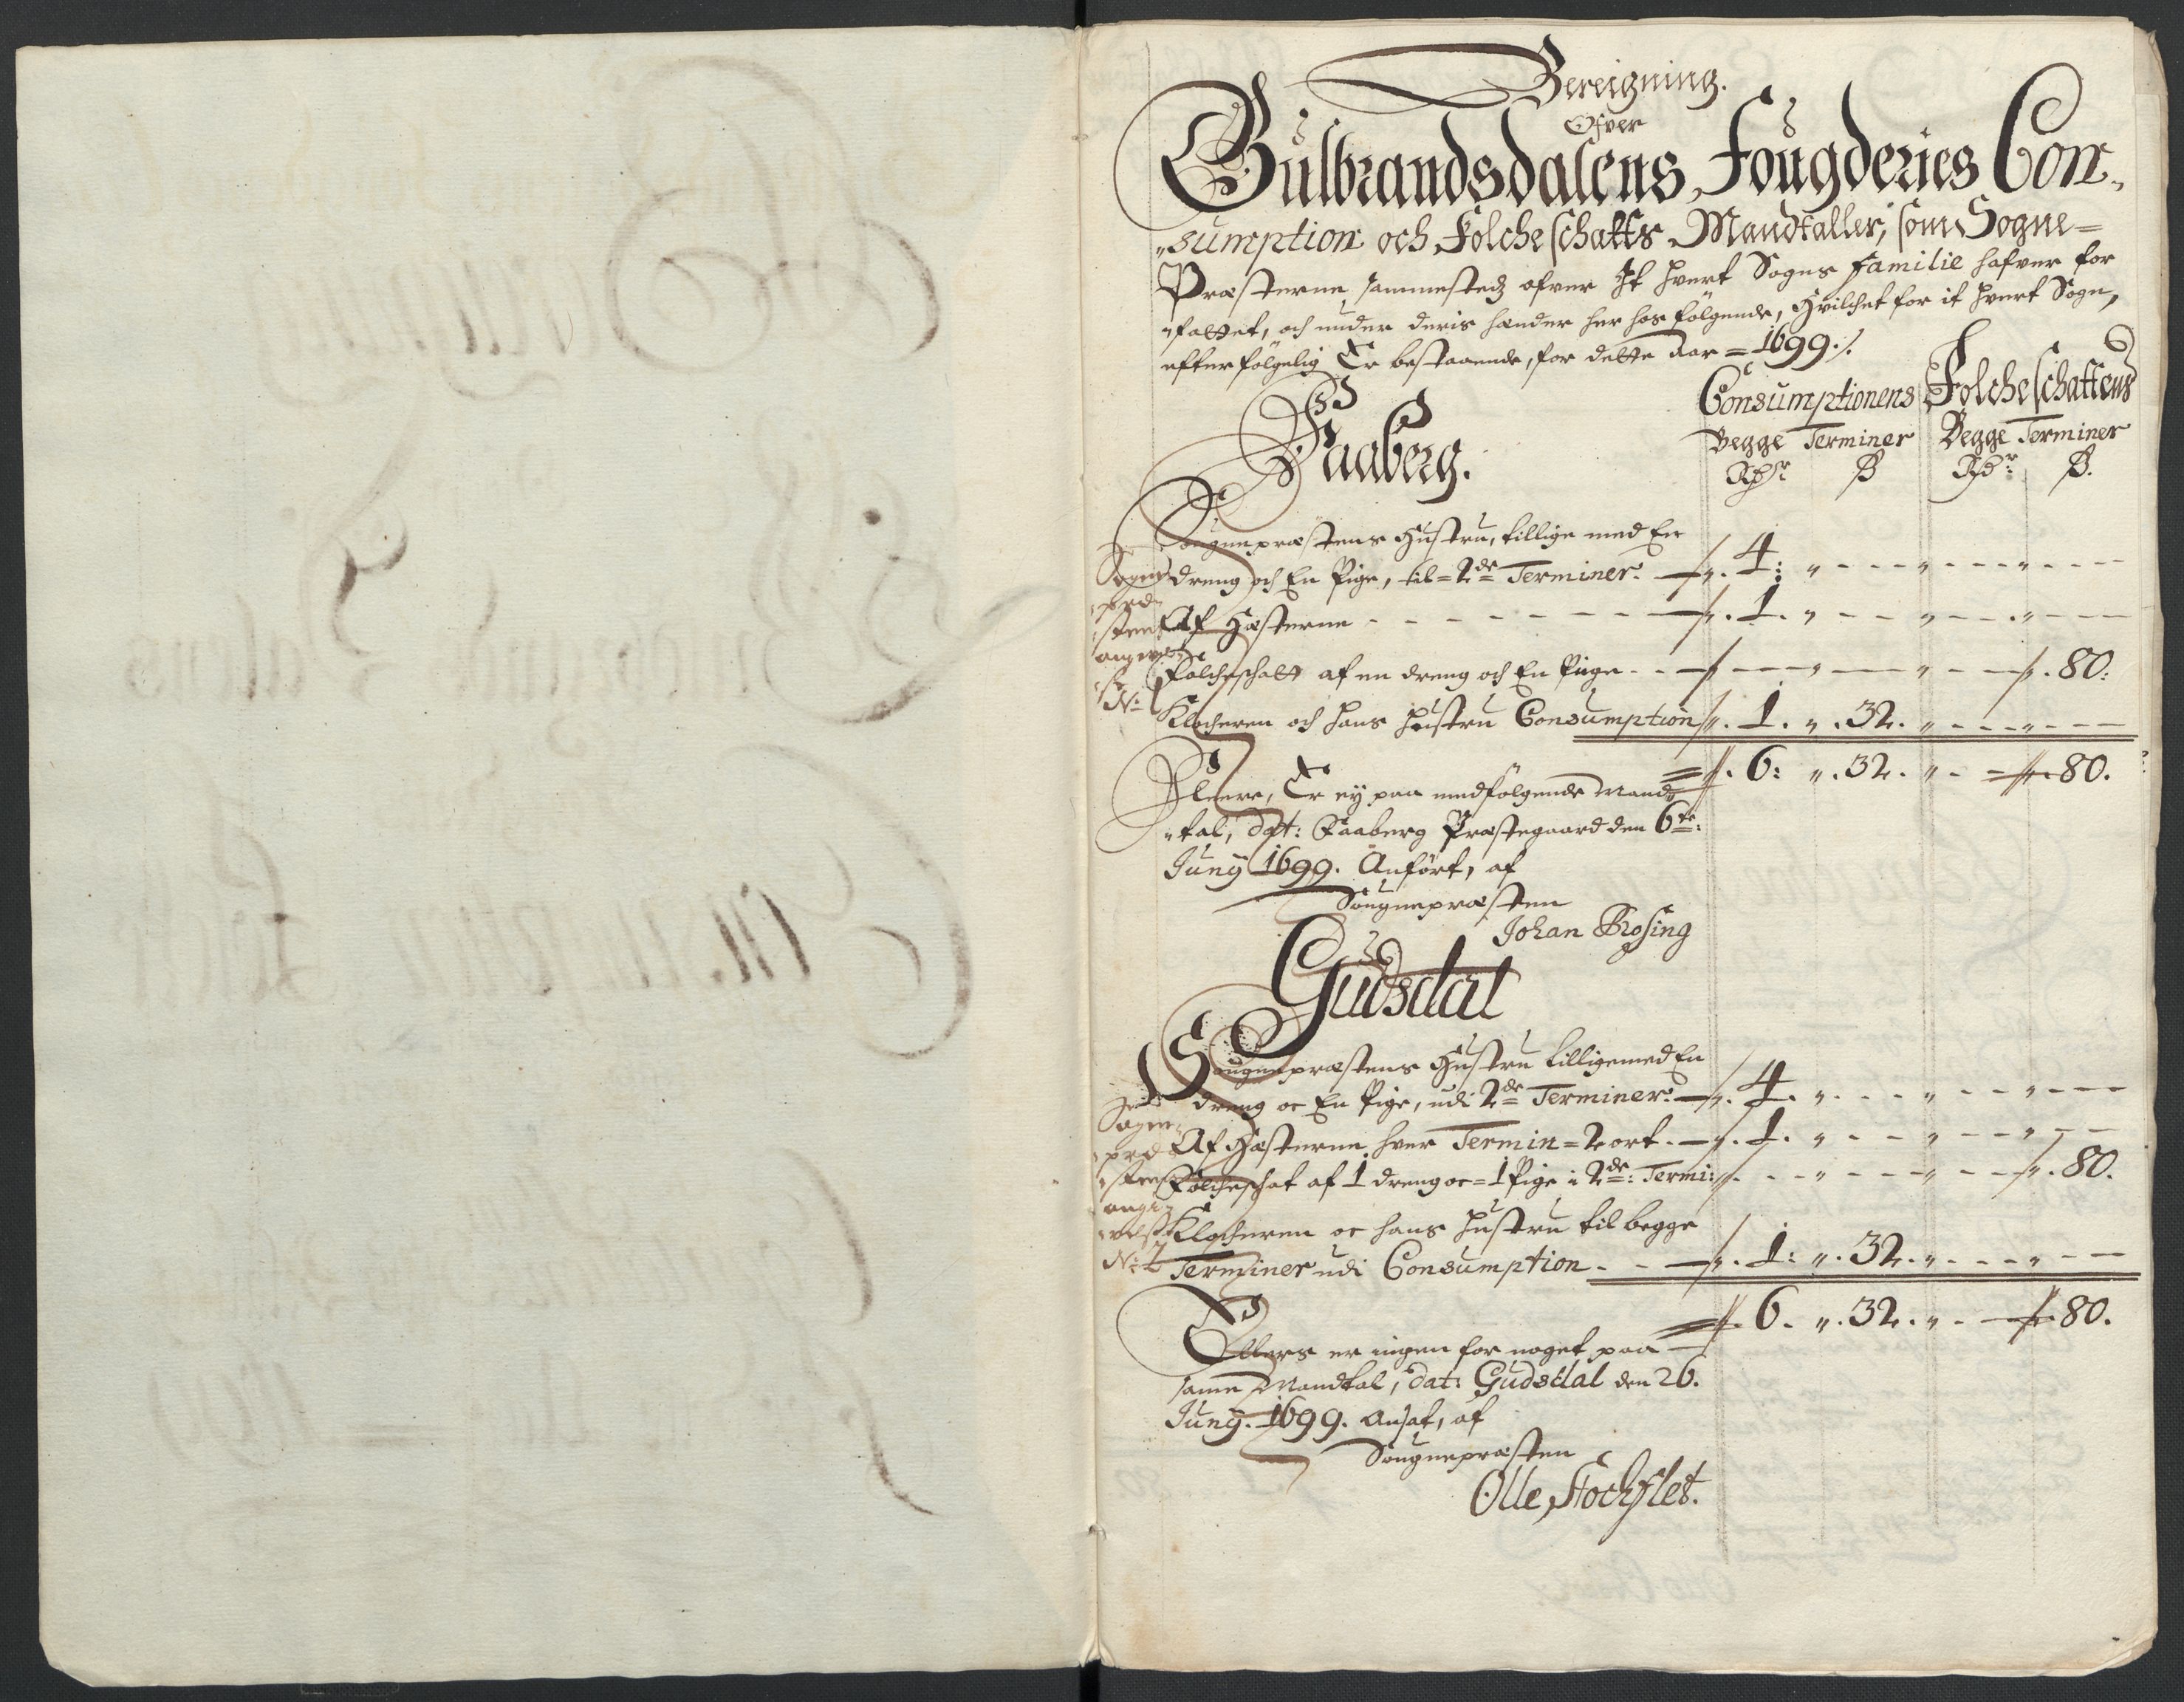 Bereigning.
Ofver
Gulbrandsdalens Fougderies Con„
„sumption och Folcheschatts Mandtaller, som Sogne=
Præsterne sammestedz ofver Et hvert Sogns familie hafver for
„fattet, och under deris hænder her hos følgende, Hvilchet for it hvert Sogn,
efterfølgelig Er bestaaende, for dette Aar = 1699 ./.
Consumptionens Folcheschattens
Begge Terminer Begge Terminer
Rdr ß Rdr: ß.
Faaberg.
Sougnepræstens Hustru, tillige med En
dreng och En Pige, til = 2de Terminer. „. 4: „
Af Hæsterne „. 1. „
Folcheschatt af en dreng och En Piige „. 80:
Klocheren och hans hustru Consumption „. 1. „. 32. „
Sogne
præ
sten
angivelse
No: 1
6: „. 32. „ 80.
Fleere, Er ey paa medfølgende Mand
„tal, dat: Faaberg Præstegaard den 6te:
Juny 1699. Anført, af
Sougnepræsten
Johan Brosing
Gudsdal
Sougnepræstens Hustru tilligemed En
dreng oc En Pige, udi 2de Terminer. „. 4. „
Af Hæsterne hver Termin = 2 ort. „. 1. „
Folcheschat af 1 dreng oc = 1 Pige i 2de: Termi: „. 80.
Klocheren oc hans hustru til begge
Terminer udi Consumption „. 1: „. 32. „
Sogne
præ
sten
angi
velse
No: 2
6. „. 32. „ 80.
Ellers er ingen for noget paa
samme Mandtal, dat: Gudsdal den 26.
Juny. 1699. Ansat, af
Sougnepræsten
Olle Stochflet.